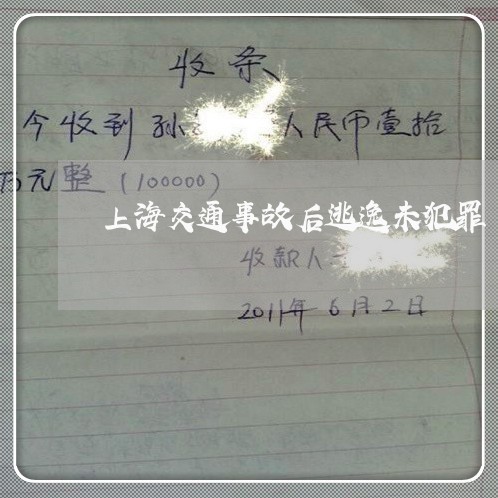 收条
今收到孙 人民币壹拾
万元整（100000）
上海交通事故后逃逸未犯罪
收款人
2011年6月2日